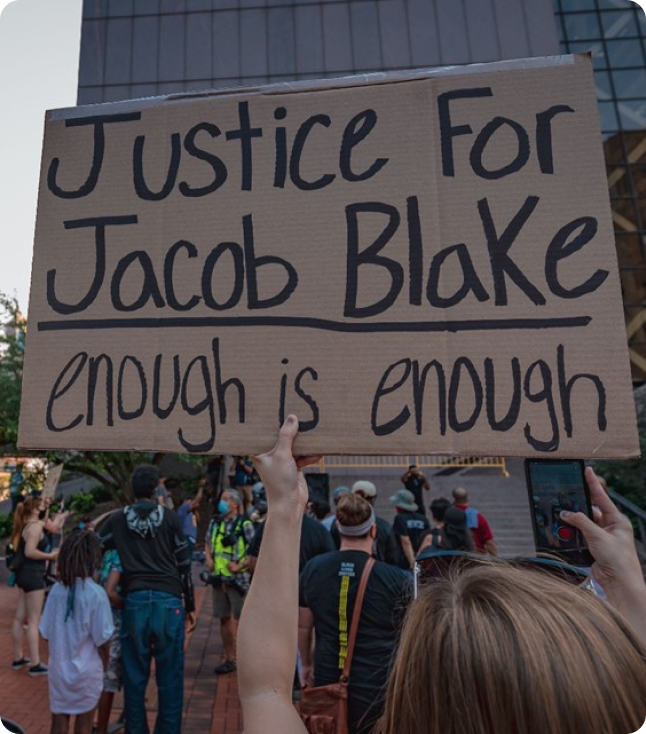 Justice For
Jacob Blake
enough is enough